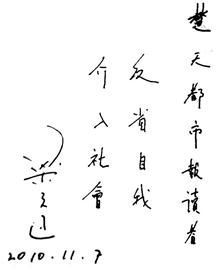 楚天都市報讀者
反省自我
介入社會
梁文道
2010.11.7